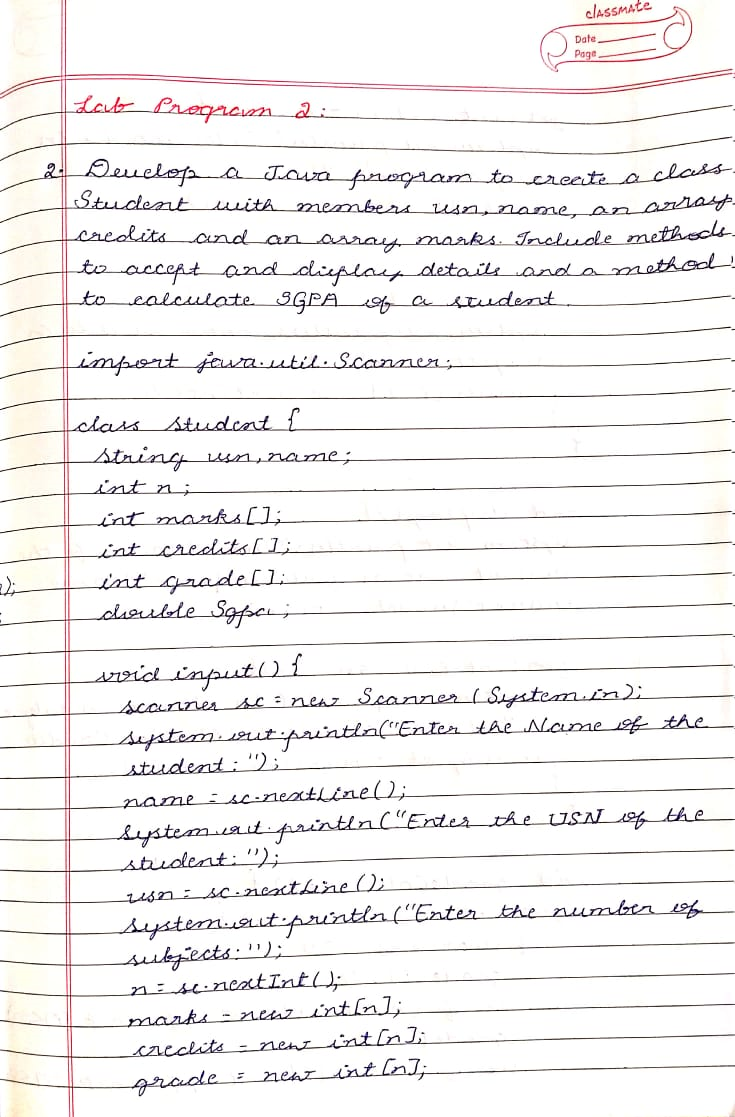 classmate
Date
Page
Lab Program 2:
2. Develop a Java program to create a class
Student with members usn, name, an array
credits and an array marks. Include methods
to accept and display details and a method
to calculate SGPA of a student.
import java.util.Scanner;
class Student {
String usn, name;
int n;
int marks[];
int credits[];
int grade[];
double Sgpa;
);
void input() {
Scanner sc = new Scanner (System.in);
System.out.println("Enter the Name of the
student: ");
name = sc.nextLine();
System.out.println("Enter the USN of the
student: ");
usn = sc.nextLine();
System.out.println("Enter the number of
subjects: ");
n = sc.nextInt();
marks = new int[n];
credits = new int[n];
grade = new int[n];